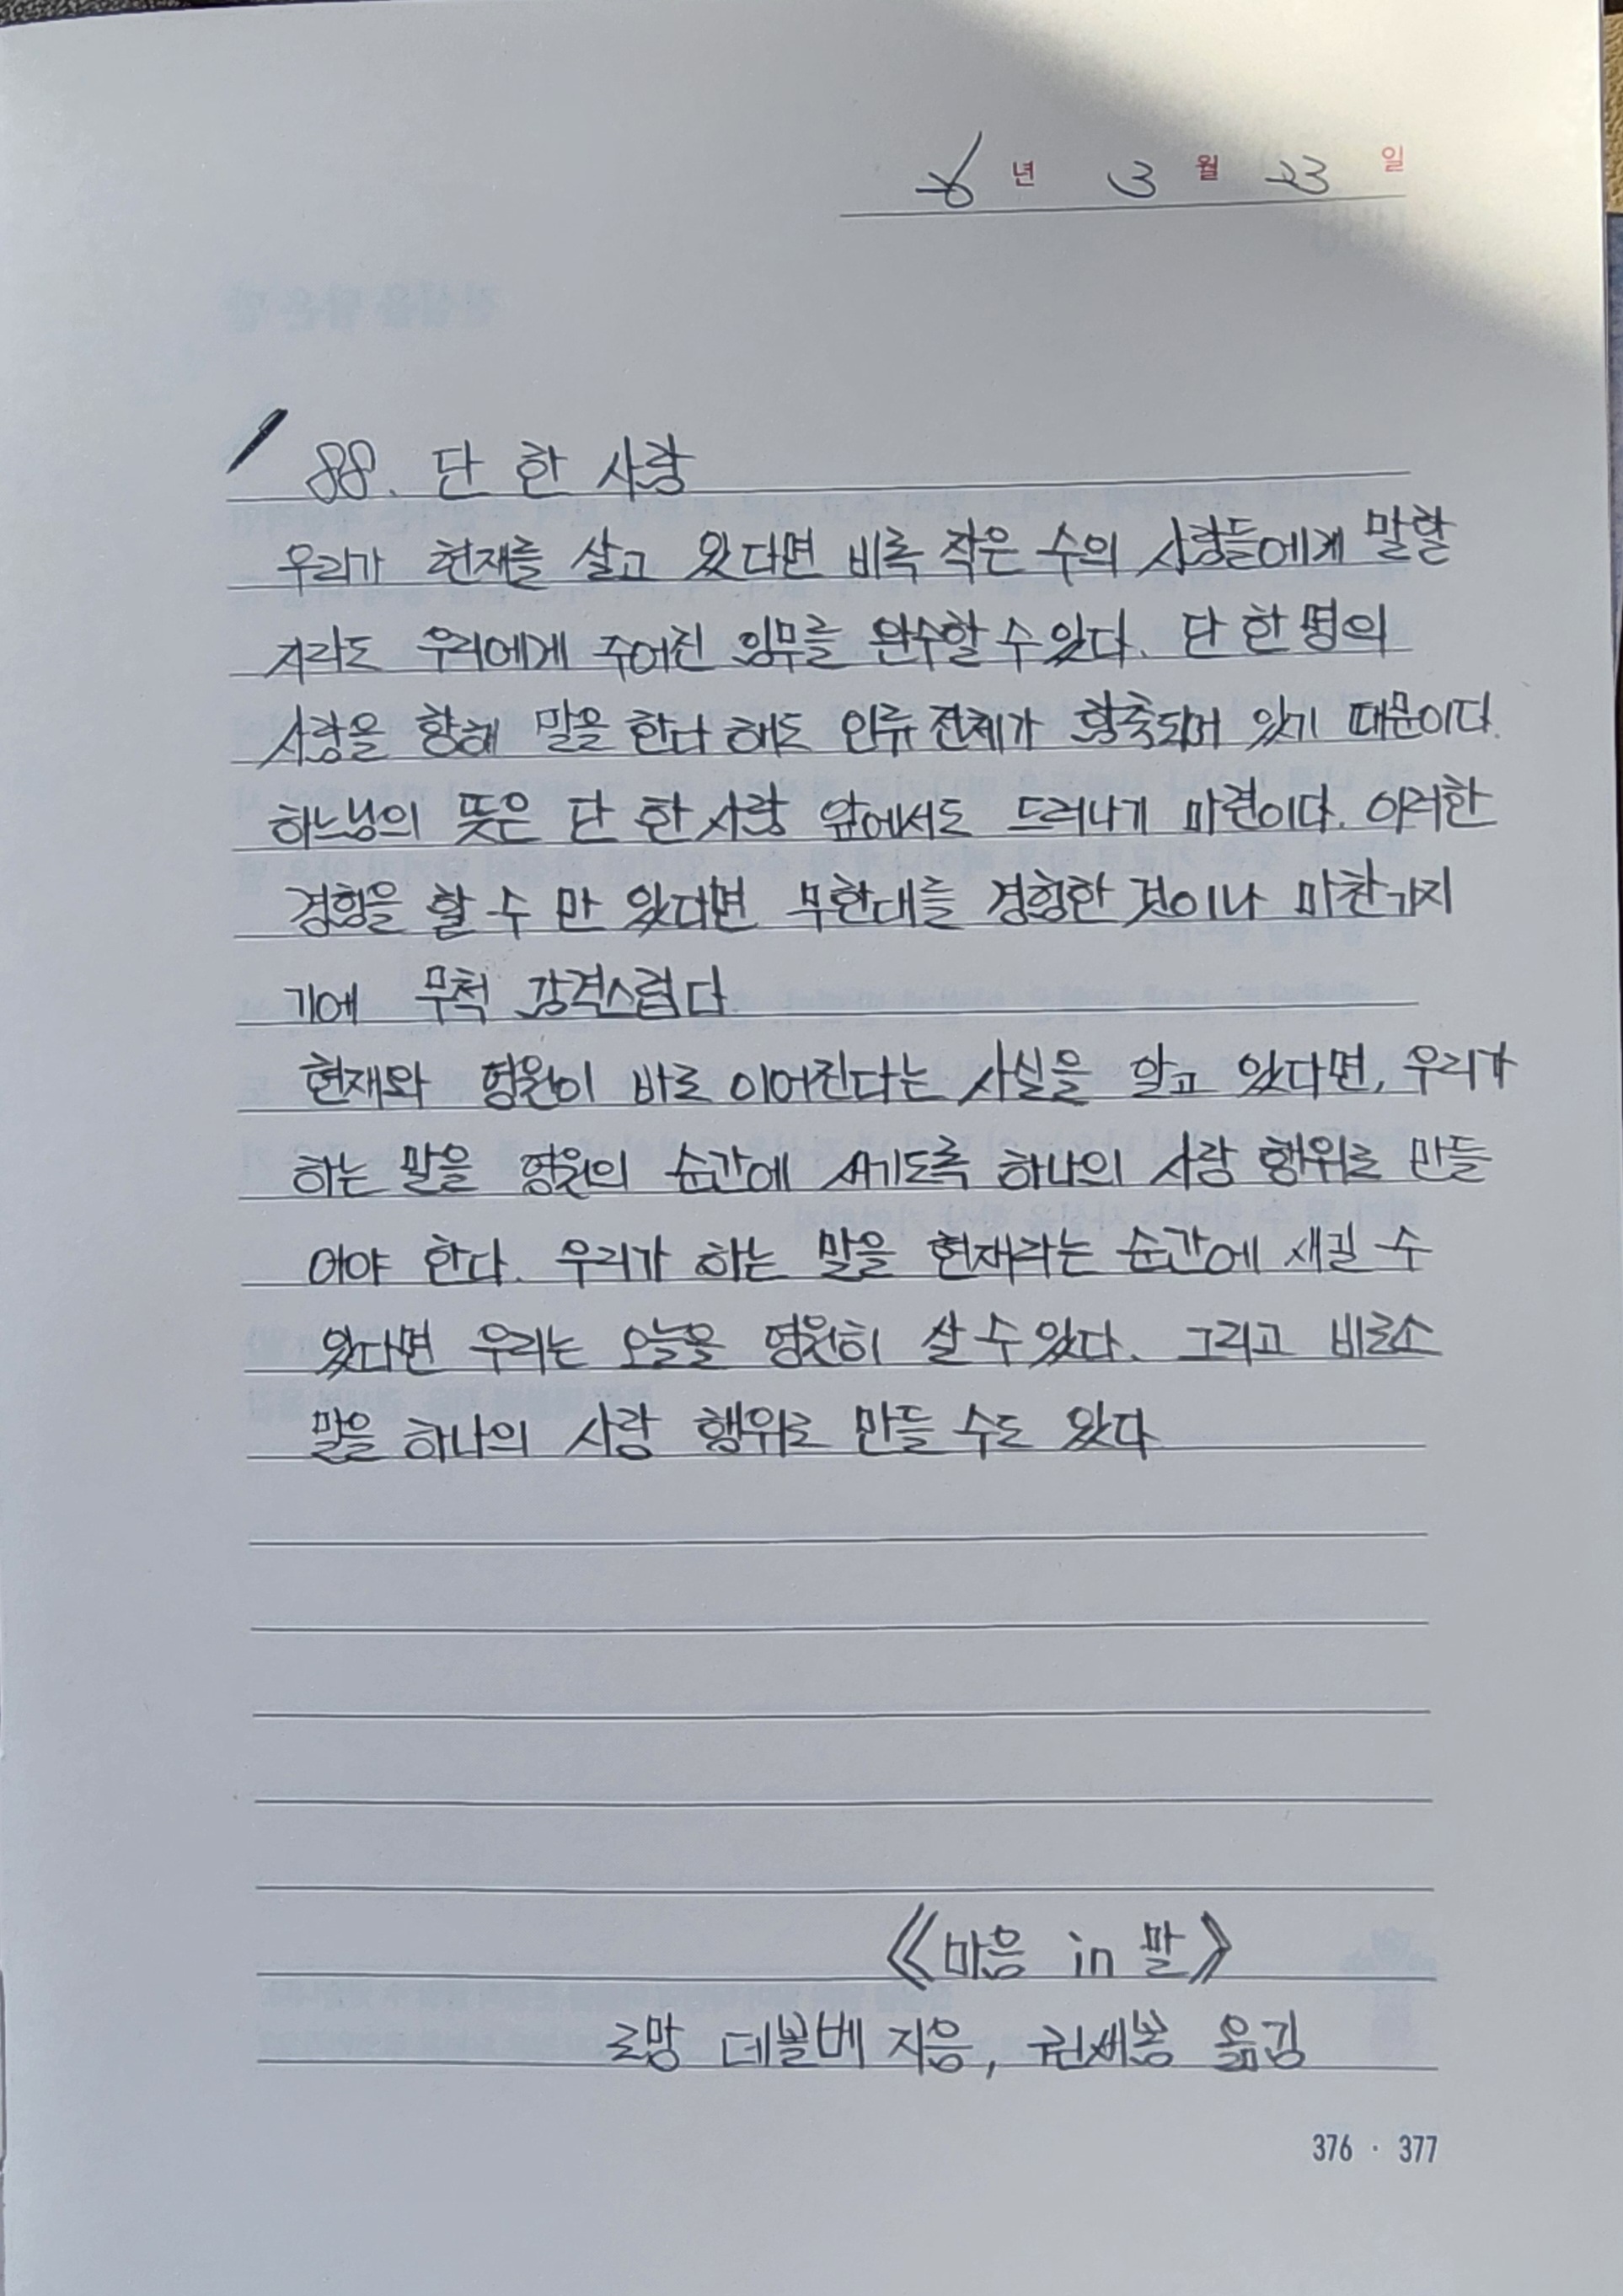 26년 3월 23일
88. 단 한 사람
우리가 현재를 살고 있다면 비록 작은 수의 사람들에게 말할
지라도 우리에게 주어진 임무를 완수할 수 있다. 단 한 명의
사람을 향해 말을 한다 해도 인류 전체가 함축되어 있기 때문이다.
하느님의 뜻은 단 한 사람 앞에서도 드러나기 마련이다. 이러한
경험을 할 수 만 있다면 무한대를 경험한 것이나 마찬가지
기에 무척 감격스럽다
현재와 영원이 바로 이어진다는 사실을 알고 있다면, 우리가
하는 말을 영원의 순간에 새기도록 하나의 사랑 행위로 만들
어야 한다. 우리가 하는 말을 현재라는 순간에 새길 수
있다면 우리는 오늘을 영원히 살 수 있다. 그리고 비로소
말을 하나의 사랑 행위로 만들 수도 있다
《마음 in 말》
로망 데볼베 지음, 권새봄 옮김
376 · 377